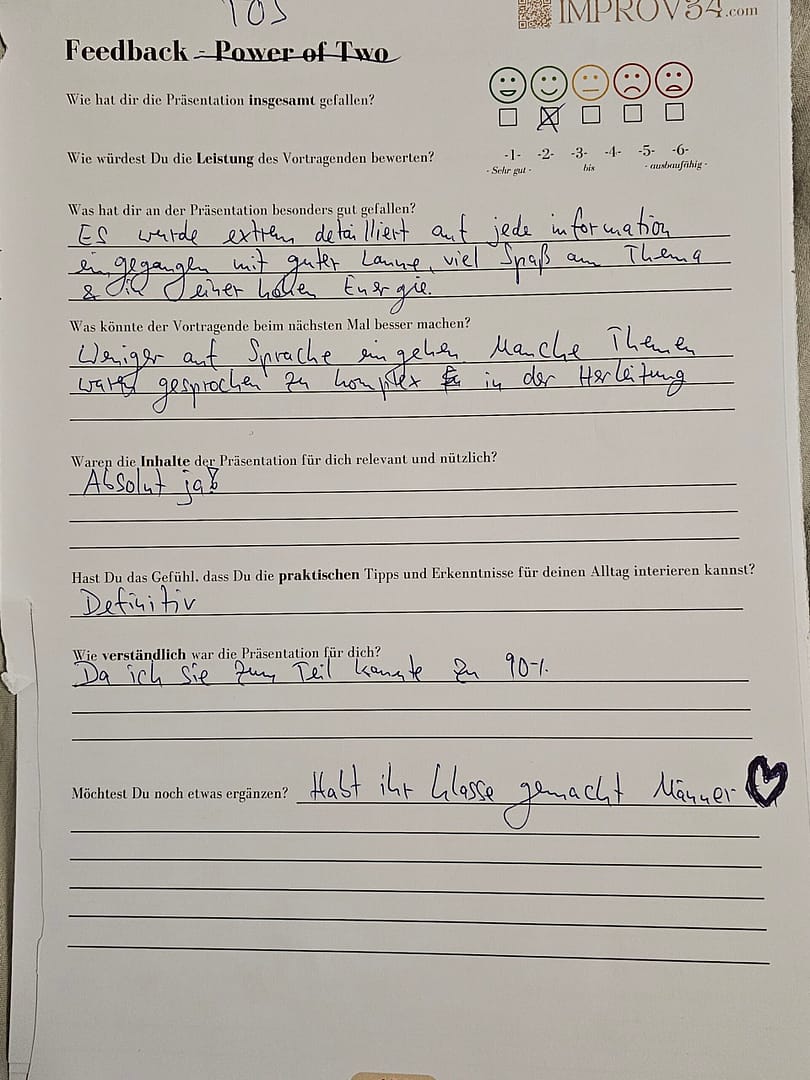 TOS
IMPROV34.com
Feedback - Power of Two
Wie hat dir die Präsentation insgesamt gefallen?
Wie würdest Du die Leistung des Vortragenden bewerten?
-1- -2- -3- -4- -5- -6-
- Sehr gut - bis - ausbaufähig -
Was hat dir an der Präsentation besonders gut gefallen?
Es wurde extrem detailliert auf jede information
eingegangen mit guter Laune, viel Spaß am Thema
& in einer hohen Energie.
Was könnte der Vortragende beim nächsten Mal besser machen?
Weniger auf Sprache eingehen. Manche Themen
waren gesprochen zu komplex in der Herleitung
Waren die Inhalte der Präsentation für dich relevant und nützlich?
Absolut ja!
Hast Du das Gefühl, dass Du die praktischen Tipps und Erkenntnisse für deinen Alltag interieren kannst?
Definitiv
Wie verständlich war die Präsentation für dich?
Da ich sie zum Teil kannte zu 90%.
Möchtest Du noch etwas ergänzen? Habt ihr klasse gemacht Männer